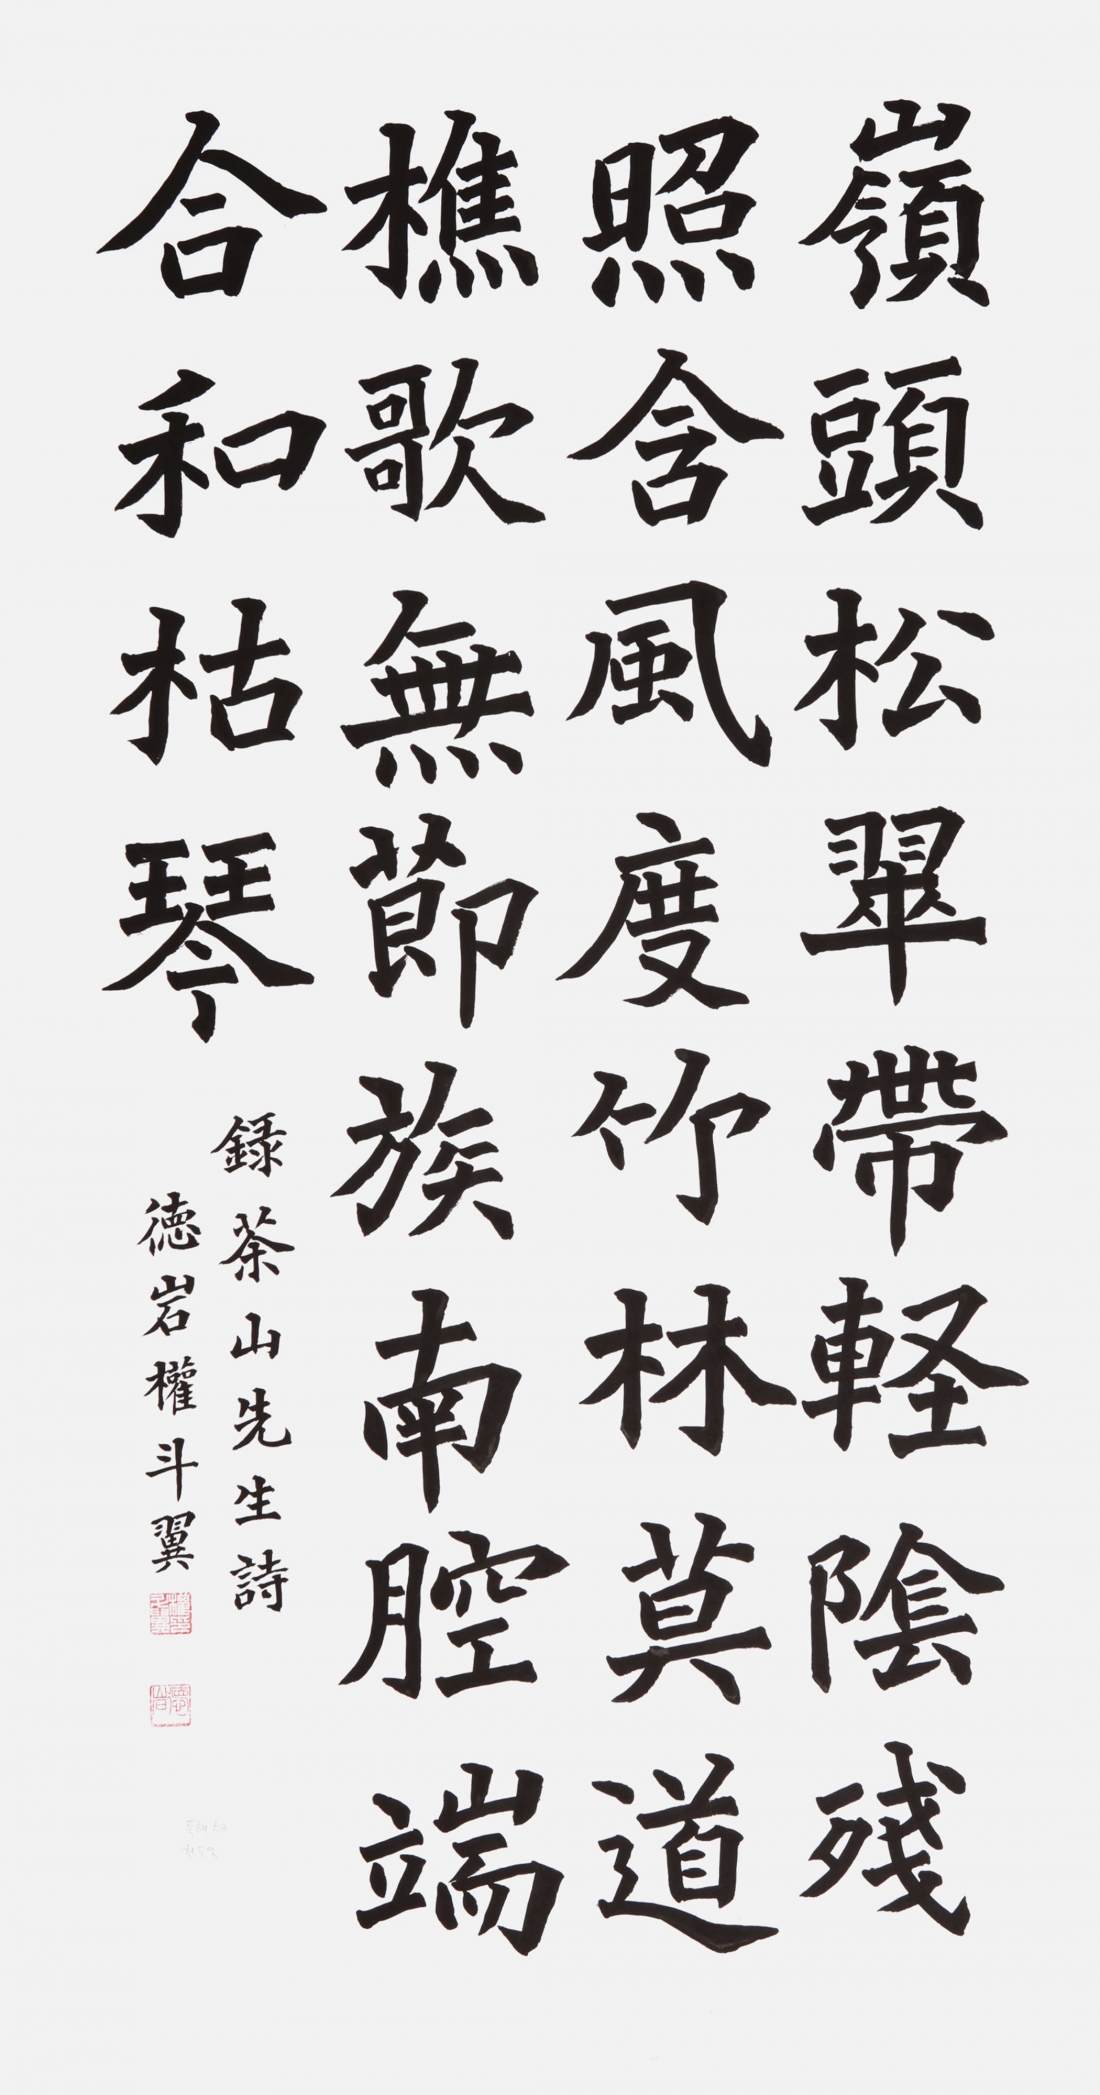 嶺頭松翠帶軽陰殘
照含風度竹林莫道
樵歌無節族南腔端
合和枯琴
録茶山先生詩
德岩權斗翼